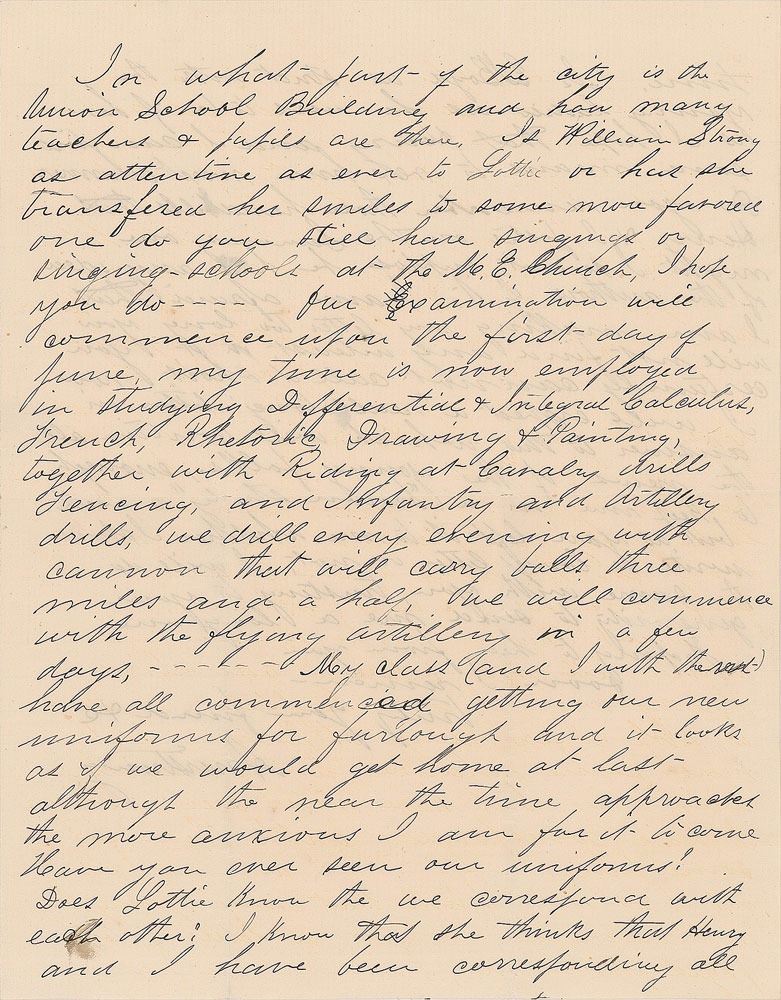 In what part of the city is the
Union School Building and how many
teachers & pupils are there. Is William Strong
as attentive as ever to Lottie or has she
transfered her smiles to some more favored
one do you still have singings or
singing-schools at the M. E. Church, I hope
you do - - - - Our Examination will
commence upon the first day of
June, my time is now employed
in studying Differential & Integral Calculus,
French, Rhetoric, Drawing & Painting,
together with Riding at Cavalry drills
Fencing, and Infantry and Artillery
drills, we drill every evening with
cannon that will carry balls three
miles and a half, we will commence
with the flying artillery in a few
days, - - - - - - My class (and I with the rest)
have all commenced getting our new
uniforms for furlough and it looks
as if we would get home at last
although the near the time approaches
the more anxious I am for it to come
Have you ever seen our uniforms?
Does Lottie Know the we correspond with
each other? I Know that she thinks that Henry
and I have been corresponding all